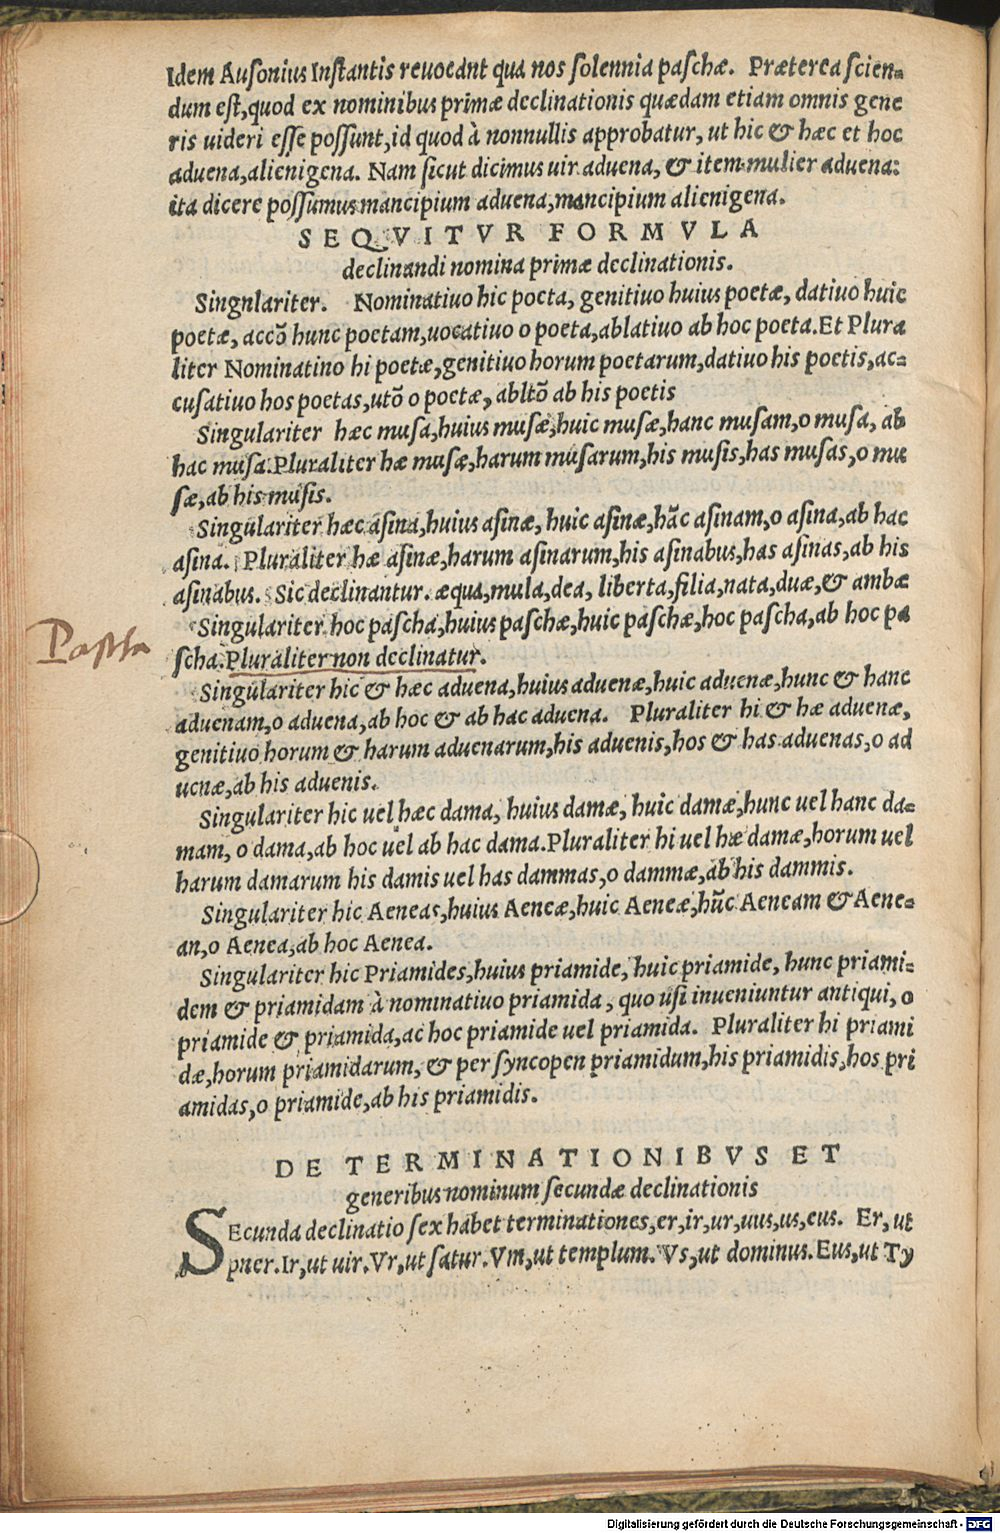 Idem Ausonius Instantis reuocant qua nos solennia paschæ. Præterea scien-
dum est, quod ex nominibus primæ declinationis quædam etiam omnis gene
ris uideri esse possunt, id quod à nonnullis approbatur, ut hic & hæc et hoc
aduena, alienigena. Nam sicut dicimus uir aduena, & item mulier aduena:
ita dicere possumus mancipium aduena, mancipium alienigena.
SEQVITVR FORMVLA
declinandi nomina primæ declinationis.
Singnlariter. Nominatiuo hic poeta, genitiuo huius poetæ, datiuo huic
poetæ, accõ hunc poetam, uocatiuo o poeta, ablatiuo ab hoc poeta. Et Plura
liter Nominatino hi poetæ, genitiuo horum poetarum, datiuo his poetis, ac-
cusatiuo hos poetas, utõ o poetæ, abltõ ab his poetis
Singulariter hæc musa, huius musæ, huic musæ, hanc musam, o musa, ab
hac musa. Pluraliter hæ musæ, harum musarum, his musis, has musas, o mu
sæ, ab his musis.
Singulariter hæc asina, huius asinæ, huic asinæ, hãc asinam, o asina, ab hac
asina. Pluraliter hæ asinæ, harum asinarum, his asinabus, has asinas, ab his
asinabus. Sic declinantur. æqua, mula, dea, liberta, filia, nata, duæ, & ambæ
Singulariter hoc pascha, huius paschæ, huic paschæ, hoc pascha, ab hoc pa
Pascha
scha. Pluraliter non declinatur.
Singulariter hic & hæc aduena, huius aduenæ, huic aduenæ, hunc & hanc
aduenam, o aduena, ab hoc & ab hac aduena. Pluraliter hi & hæ aduenæ,
genitiuo horum & harum aduenarum, his aduenis, hos & has aduenas, o ad
uenæ, ab his aduenis.
Singulariter hic uel hæc dama, huius damæ, huic damæ, hunc uel hanc da-
mam, o dama, ab hoc uel ab hac dama. Pluraliter hi uel hæ damæ, horum uel
harum damarum his damis uel has dammas, o dammæ, ab his dammis.
Singulariter hic Aeneas, huius Aeneæ, huic Aeneæ, hũc Aeneam & Aene-
an, o Aenea, ab hoc Aenea.
Singulariter hic Priamides, huius priamide, huic priamide, hunc priami-
dem & priamidam à nominatiuo priamida, quo usi inueniuntur antiqui, o
priamide & priamida, ac hoc priamide uel priamida. Pluraliter hi priami
dæ, horum priamidarum, & per syncopen priamidum, his priamidis, hos pri
amidas, o priamide, ab his priamidis.
DE TERMINATIONIBVS ET
generibus nominum secundæ declinationis
SEcunda declinatio sex habet terminationes, er, ir, ur, uus, us, eus. Er, ut
pner. Ir, ut uir. Vr, ut satur. Vm, ut templum. Vs, ut dominus. Eus, ut Ty
Digitalisierung gefördert durch die Deutsche Forschungsgemeinschaft - DFG